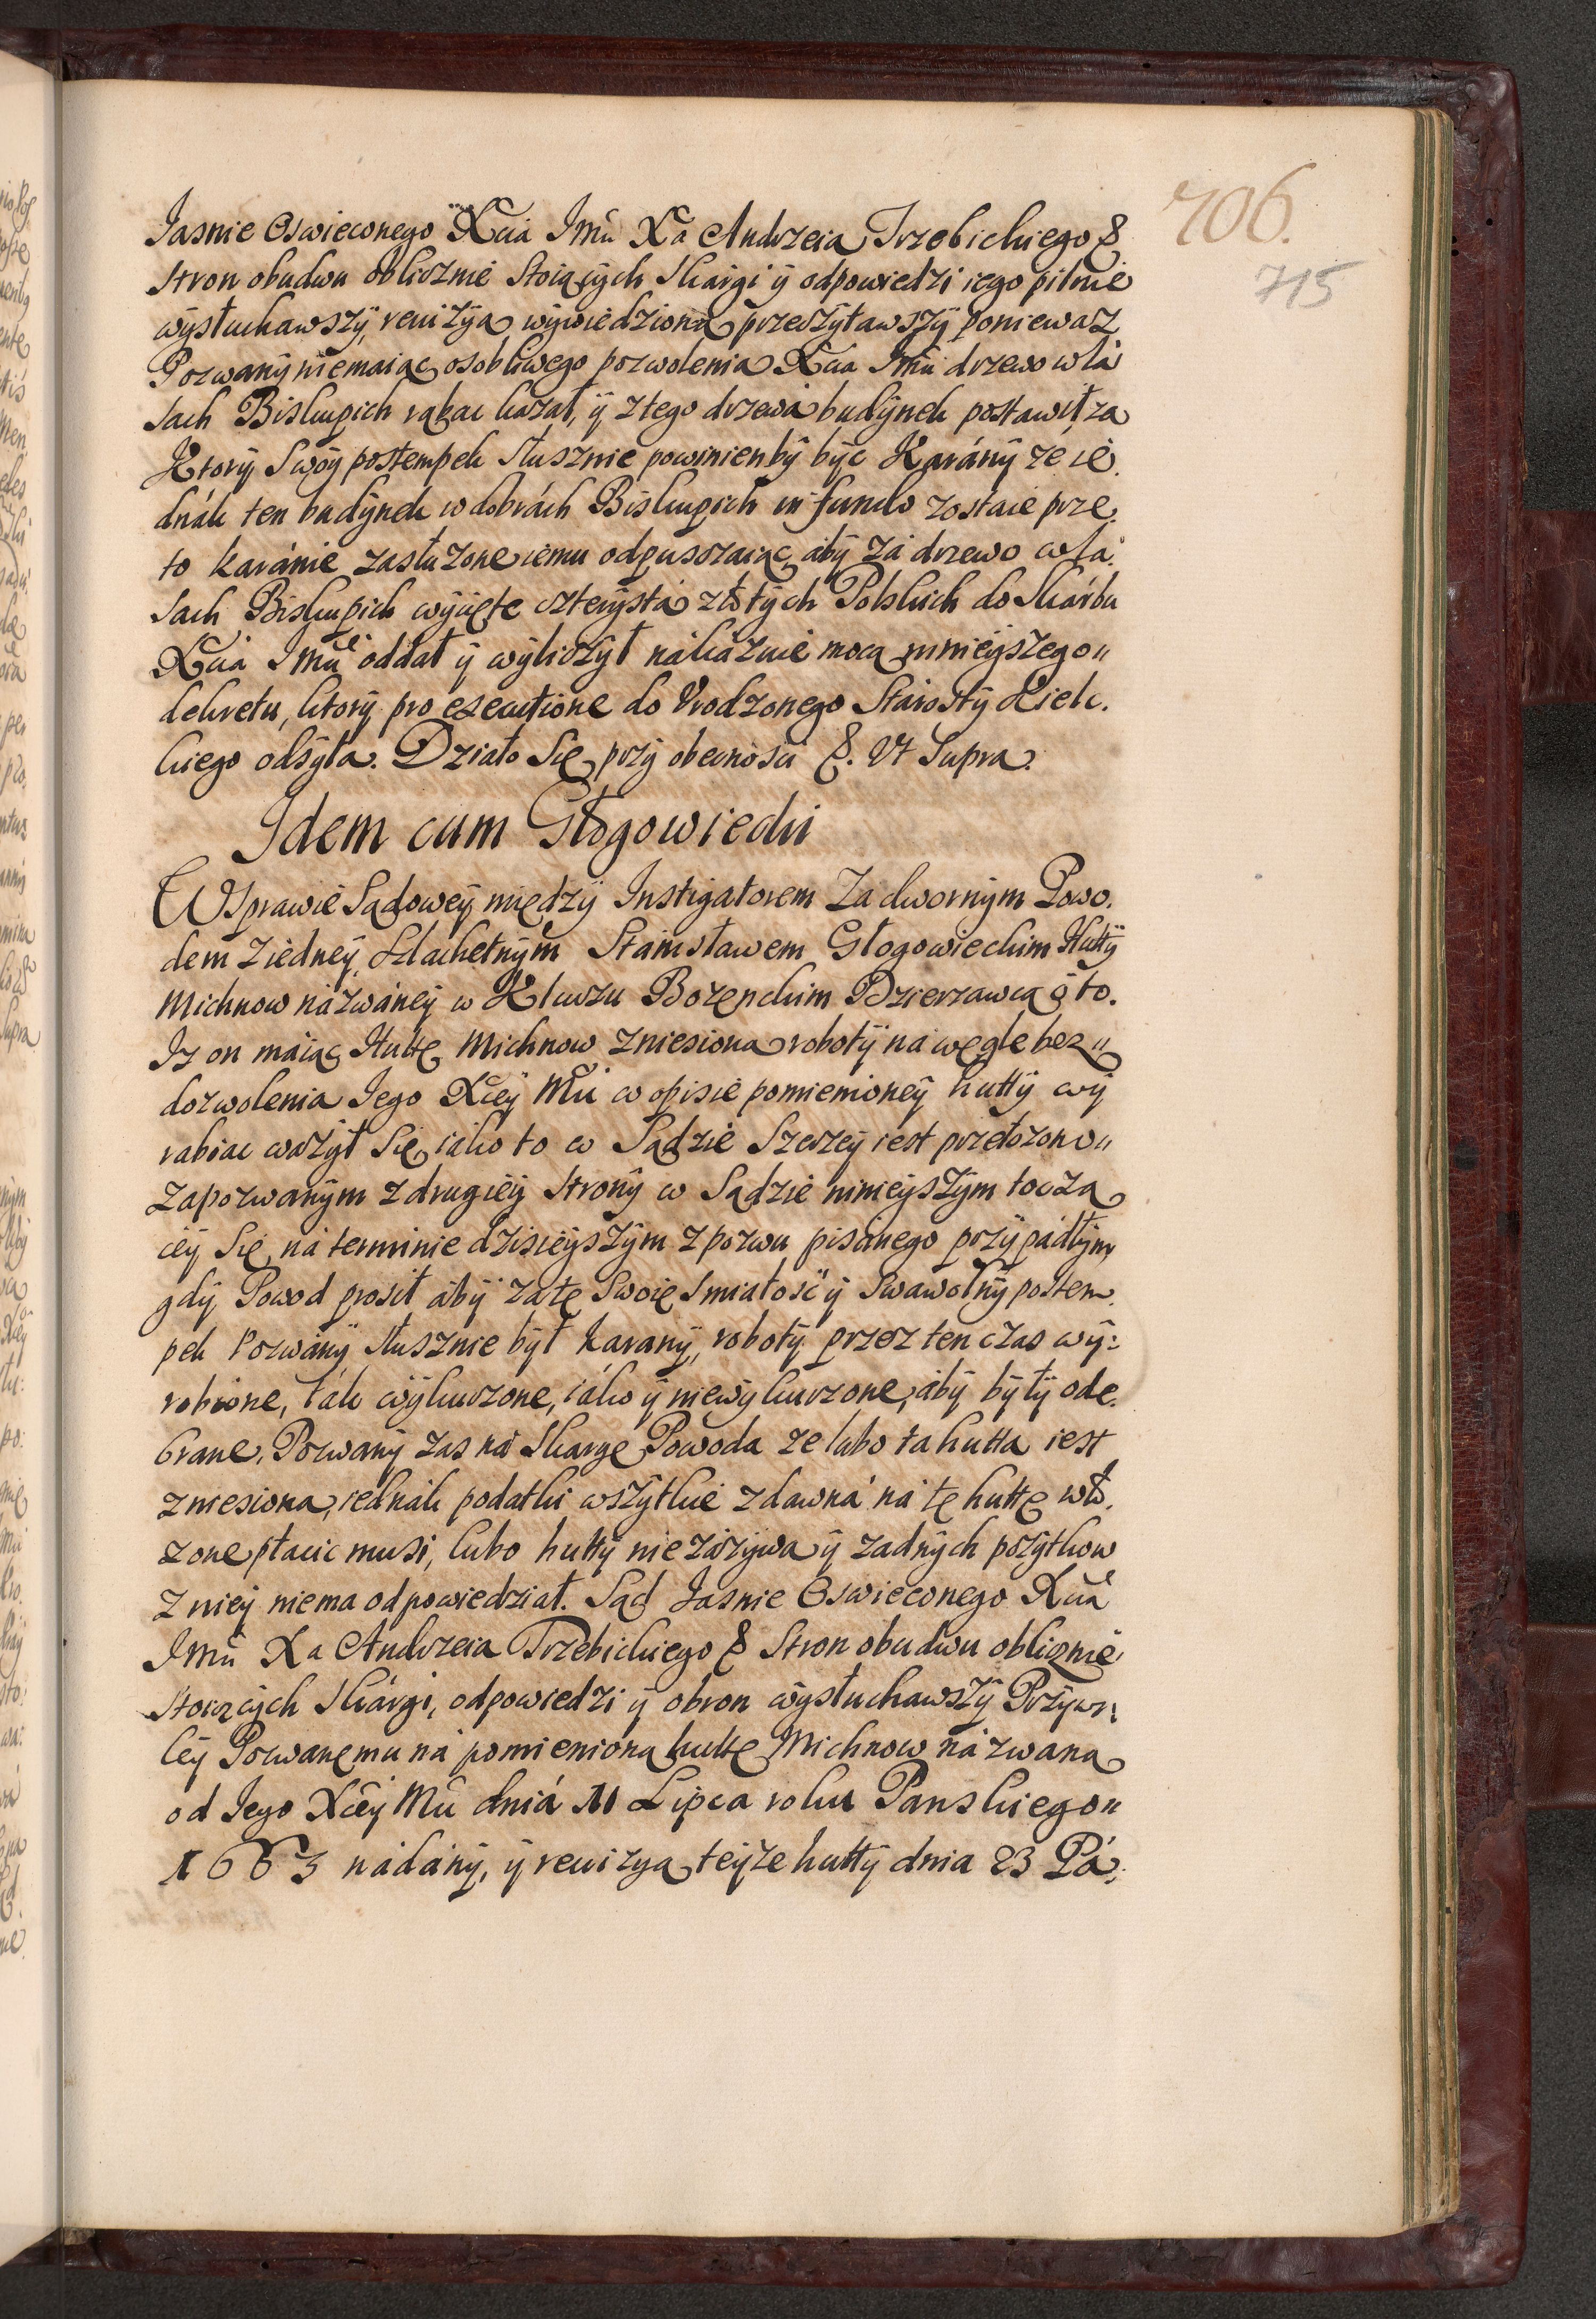 706.
715
Jasnie Oswieconego Xcia Jmci Xa Andrzeia Trzebickiego &
stron obudwu oblicznie stoiących skargi ÿ odpowiedzi iego pilnie
wÿsłuchawszÿ, rewizÿą wÿwiedzioną przeczÿtawszÿ poniewaz
Pozwanÿ niemaiąc osobliwego pozwolenia Xcia Jmci drzewo w la
sach Biskupich rąbac kazał, ÿ z tego drzewa budÿnek postawił, za
Ktorÿ Swoÿ postempek słusznie powinienbÿ bÿc Karánÿ ze ie
dnák ten budÿnek w dobrách Biskupich in fundo zostaie prze
to karánie zasłuzone iemu odpuszczaiąc, abÿ zá drzewo w la:
sach Biskupich wÿcięte czterÿsta złotÿch Polskich do Skárbu
Xcia Jmci oddał ÿ wÿliczÿł nákázuie mocą ninieÿszego"
dekretu, ktorÿ pro executione do Vrodzonego Stárostÿ Kielc.
kiego odsÿła. Działo Się przÿ obecnosci &. Vt Supra.
Idem cum Głogowiecki
W Sprawie Sądoweÿ międzÿ Instigatorem Zadwornÿm Powo.
dem z iedneÿ, Szlachetnÿm Stanisławem Głogowieckim Huttÿ
Michnow názwáneÿ w Kluczu Bozenckim Dzierzawcą o to.
Iz on máiąc Huttę Michnow zniesioną robotÿ ná węgle bez"
dozwolenia Jego Xceÿ Mci w opisie pomienioneÿ huttÿ wÿ
rabiac wazÿł Się, iako to w Sądzie Szerzeÿ iest przełozono"
Zapozwanÿm z drugieÿ stronÿ w Sądzie ninieÿszÿm toczą
ceÿ Się, ná terminie dzisieÿszÿm z pozwu pisanego przÿpádłÿm,
gdÿ Powod prosił ábÿ zá tę Swoię smiałosć ÿ Swawolnÿ postem
pek Pozwánÿ słusznie bÿł karanÿ, robotÿ przez ten czas wÿ:
robione, ták wÿkurzone, iáko ÿ niewÿkurzone, ábÿ bÿłÿ ode
brane. Pozwanÿ zas ná Skargę Powoda ze lubo ta hutta iest
zniesiona, iednák podatki wszÿtkie zdawná ná tę huttę wło.
zone płacic musi, lubo huttÿ nie záżÿwa ÿ zadnÿch pozÿtkow
z nieÿ niema odpowiedział. Sąd Jasnie Oswieconego Xcia
Jmci Xa Andrzeia Trzebickiego & Stron obudwu oblicznie
stoiącÿch Skárgi, odpowiedzi ÿ obron wÿsłuchawszÿ Przÿwi
leÿ Pozwanemu ná pomienioną huttę Michnow názwaną
od Jego Xceÿ Mci dniá 11 Lipca roku Panskiego"
1663 nádánÿ, ÿ rewizÿą teÿze huttÿ dnia 23 Pá: